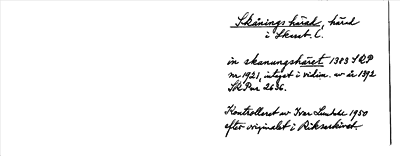 Skånings härad, härad
i Skarab. l.
in skanungshæret 1383 SRP
nr 1921, intaget i vidim. av år 1392
SRP nr 2636.
Kontrollerat av Ivar Lundahl 1950
efter originalet i Riksarkivet.